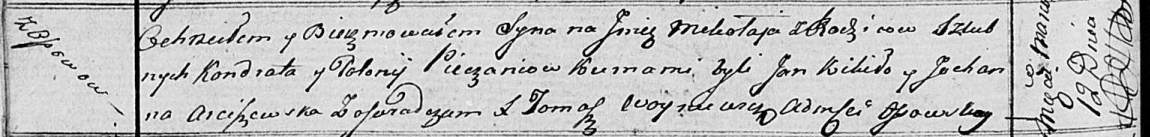 z Osowa
Ochrzciłem y Bierzmowałem Syna na Jmię Mikołaja z Rodzicow Szlub
nych Kondrata y Polonij Pieczaniow Kumami byli Jan Kikiło y Johan
na Arciszewska Zoświadczam X Tomasz Woyniewicz Admsci Osowskiy
12 Dnia